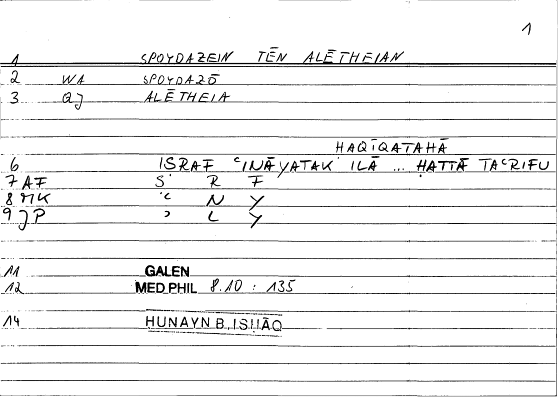 1
1 SPOYDAZEIN TĒN ALĒTHEIAN
2 WA SPOYDAZŌ
3 QJ ALĒTHEIA
ḤAQĪQATAHĀ
6 IṢRAF ʿINĀYATAK ʾILĀ ... ḤATTĀ TAʿRIFU
7 AF Ṣ R F
8 MK ʿ N Y
9 JP ʾ L Y
11 GALEN
12 MED PHIL 8.10 : 135
14 ḤUNAYN B. ISḤĀQ